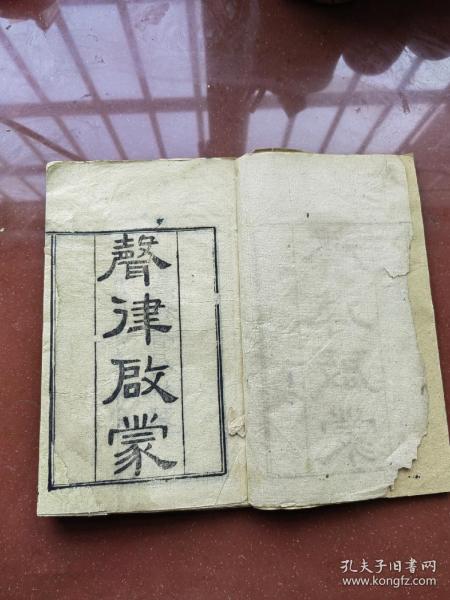 聲律啟蒙
孔夫子旧书网
www.kongfz.com